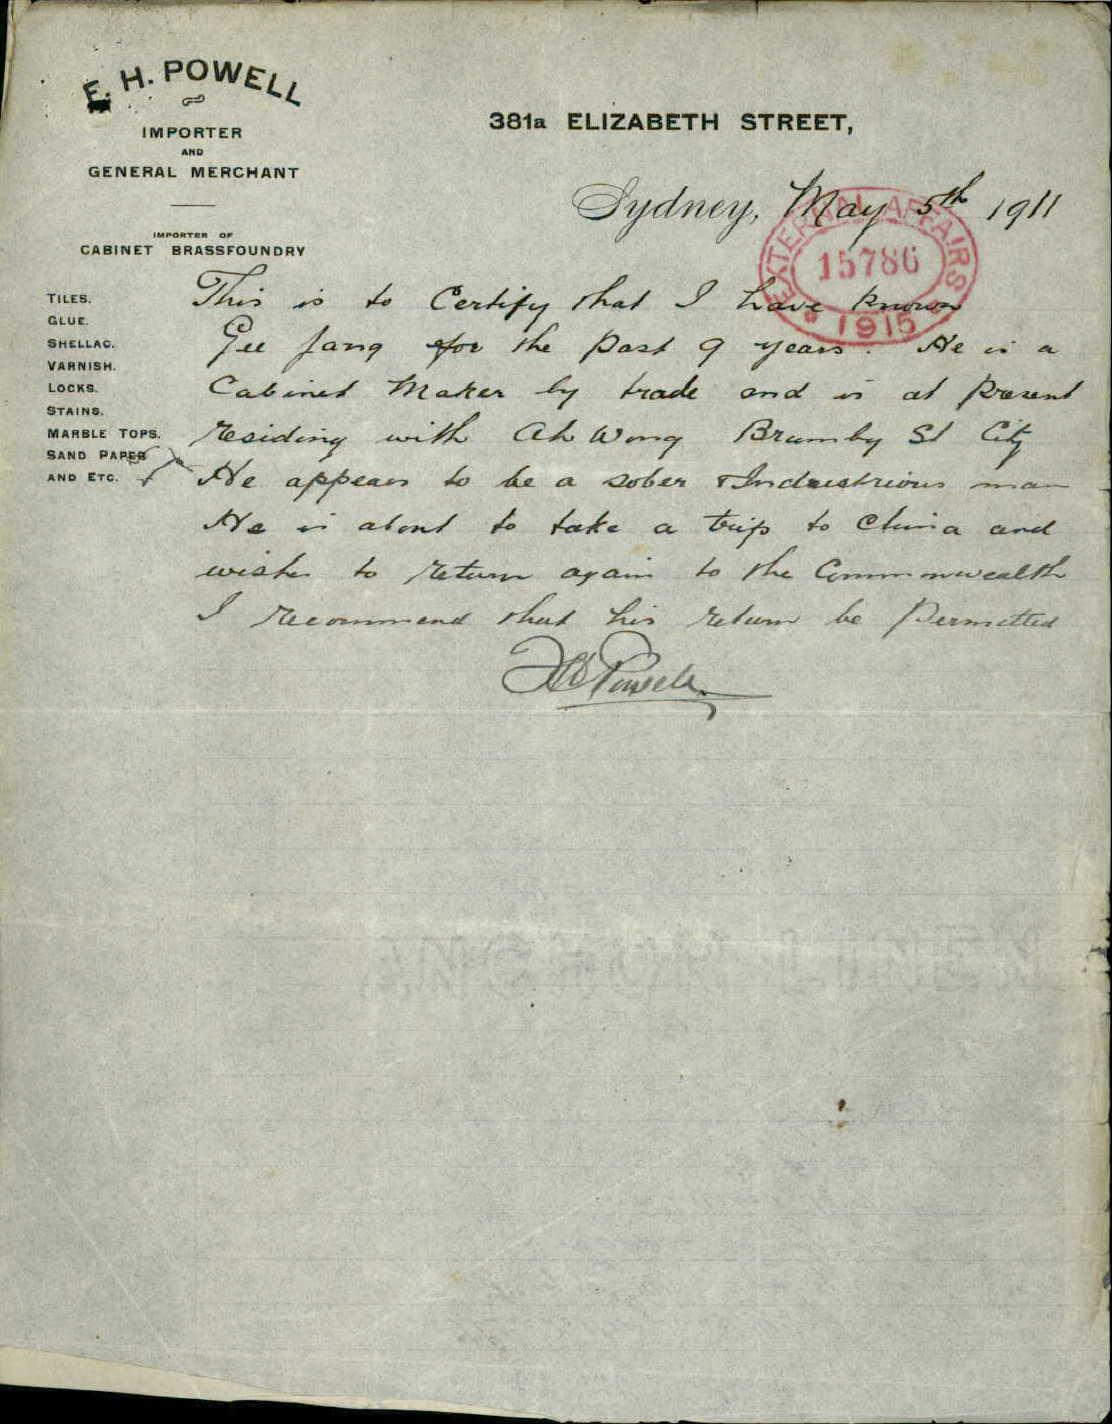 E. H. POWELL
IMPORTER
AND
GENERAL MERCHANT
IMPORTER OF
CABINET BRASSFOUNDRY
TILES.
GLUE.
SHELLAC.
VARNISH.
LOCKS.
STAINS.
MARBLE TOPS.
SAND PAPER
AND ETC.
381a ELIZABETH STREET,
Sydney, May 5th 1911
EXTERNAL AFFAIRS
15786
1915
This is to Certify that I have known
Gee Jang for the past 9 years. He is a
Cabinet Maker by trade and is at present
residing with Ah Wong Brumby St City
He appears to be a sober & Industrious man
He is about to take a trip to China and
wishes to return again to the Commonwealth
I recommend that his return be Permitted
Powell